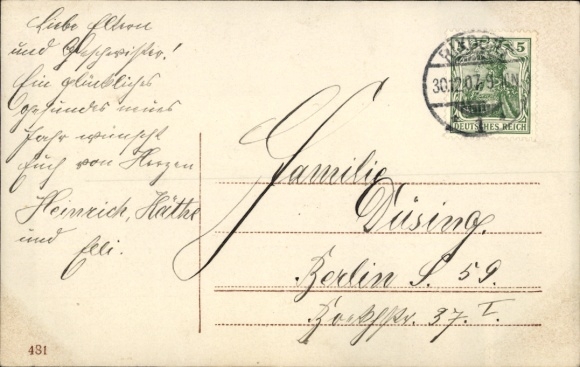 Liebe Eltern
und Geschwister!
Ein glückliches
gesundes neues
Jahr wünscht
Euch von Herzen
Heinrich, Käthe
und Elli.
RIXDORF
30.12.07.
1
5
DEUTSCHES REICH
Familie
Düsing.
Berlin S. 59.
37. I
431